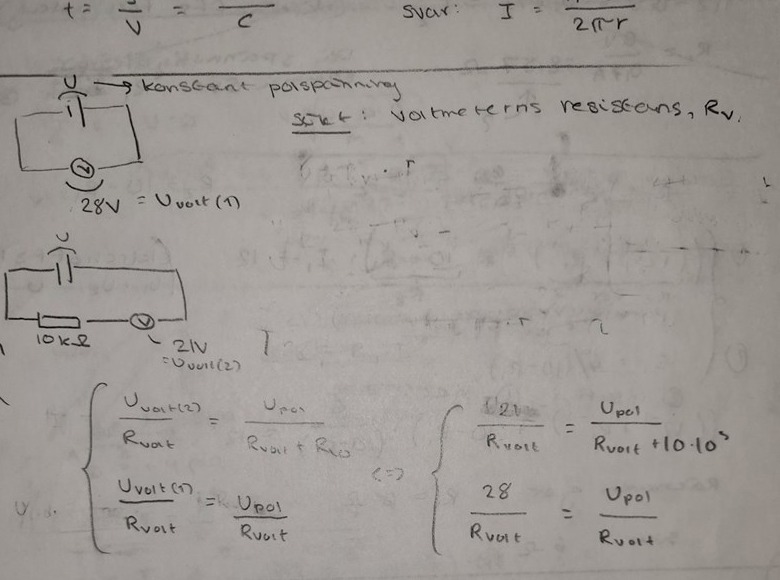 t = / V = / C
svar: I = / 2πr
U → konstant polspänning
sökt: voltmeterns resistans, Rv.
V
28V = Uvolt(1)
U
10kΩ
V
21V
= Uvolt(2)
Uvolt(2) / Rvolt = Upol / Rvolt + R10 <=> 21 / Rvolt = Upol / Rvolt + 10·10³
Uvolt(1) / Rvolt = Upol / Rvolt
28 / Rvolt = Upol / Rvolt